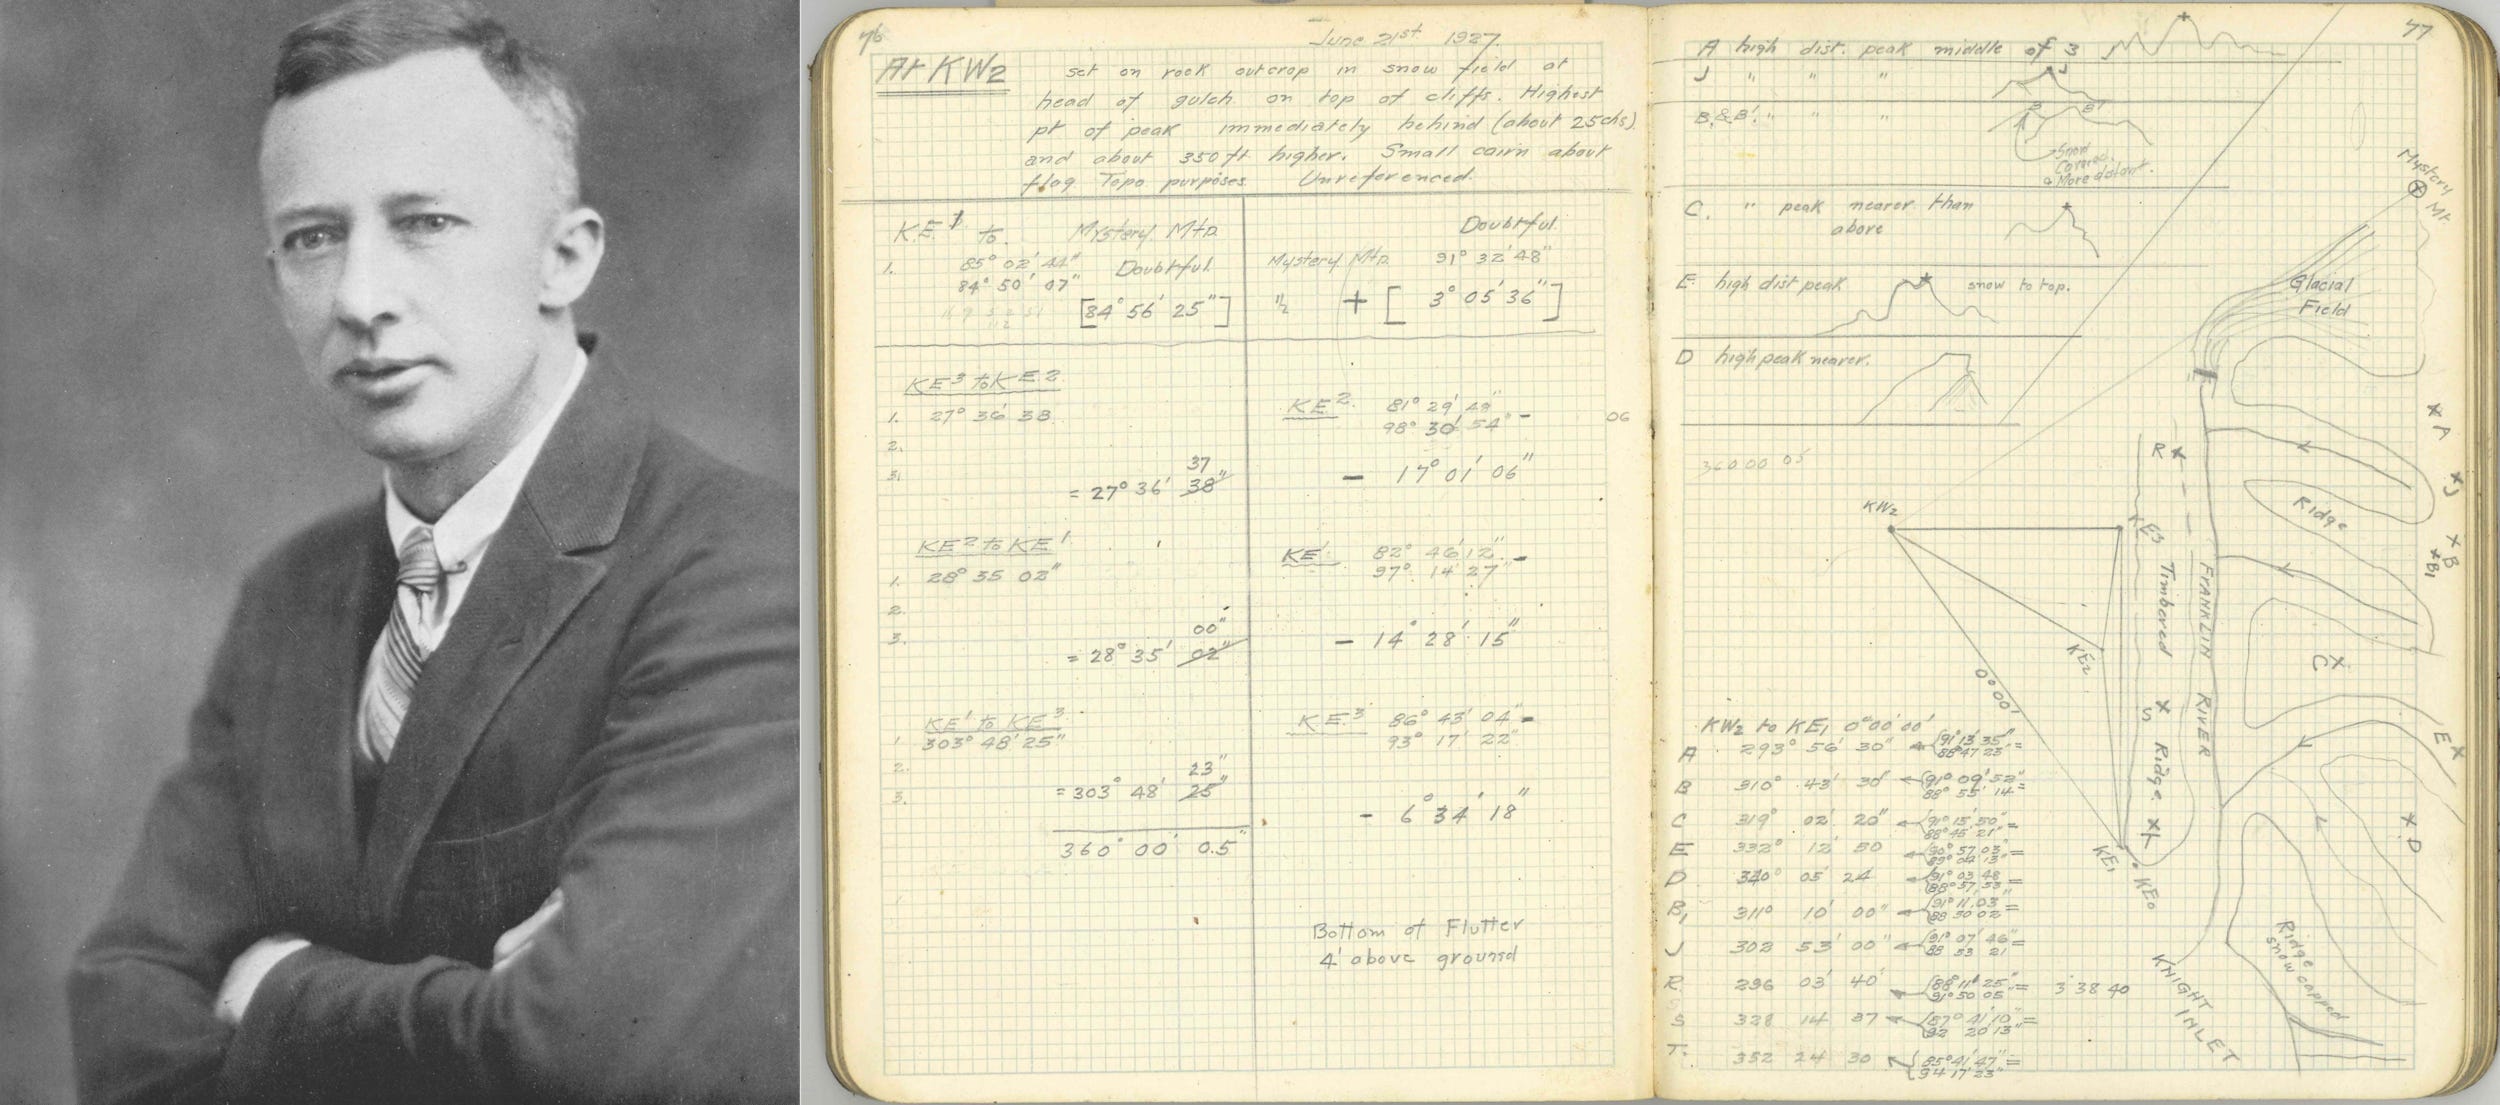 76
June 21st 1927.
At KW2
set on rock outcrop in snow field at
head of gulch on top of cliffs. Highest
pt of peak immediately behind (about 25chs)
and about 350 ft higher. Small cairn about
flag Topo purposes. Unreferenced.
K.E.1 to Mystery Mtn.
1. 85° 02' 44" Doubtful.
84° 50' 07"
[84° 56' 25"]
Doubtful.
Mystery Mtn. 91° 32' 48"
1/2 + [3° 05' 36"]
KE3 to KE2
1. 27° 36' 38
2.
3.
37
= 27° 36' 38"
KE2 81° 29' 48" -
98° 30' 54"
06
- 17° 01' 06"
KE2 to KE1
1. 28° 35 02"
2.
3.
00"
= 28° 35' 02"
KE1 82° 46' 12" -
97° 14' 27"
- 14° 28' 15"
KE1 to KE3
1 303° 48' 25"
2.
3.
23"
= 303° 48' 25"
360° 00' 0.5"
KE3 86° 43' 04" -
93° 17' 22"
- 6° 34' 18"
Bottom of Flutter
4' above ground
77
A high dist. peak middle of 3
J " " "
J
B.&B'. " " "
B B'
Snow
Covered.
& More distant.
C. " peak nearer than
above
E. high dist peak snow to top.
D high peak nearer.
360 00 05
Mystery
Mt.
Glacial
Field
A
J
R
Ridge
KW2
KE3
B
B1
Timbered
FRANKLIN RIVER
C
KE2
0°00'
S
Ridge
E
D
KE1
KE0
KNIGHT INLET
Ridge
snow capped
KW2 to KE1 0°00'00"
A 293° 56' 30" 91° 13' 35" =
88° 47' 23"
B 310° 43' 30" 91° 09' 52" =
88° 55' 14"
C 319° 02' 20" 91° 15' 50" =
88° 45' 21"
E 332° 12' 50 90° 57' 03" =
89° 04' 13"
D 340° 05' 24 91° 03 48 =
88° 57' 53"
B1 311° 10' 00" 91° 11' 03 =
88 50 02
J 302 53' 00" 91° 07' 46" =
88 53 21
R. 296 03' 40' 88° 11' 25" = 3 38 40
91° 50 05
S 328 14 37 87° 41' 10" =
92 20' 13"
T. 352 24 30 85° 41' 47" =
94 17' 23"